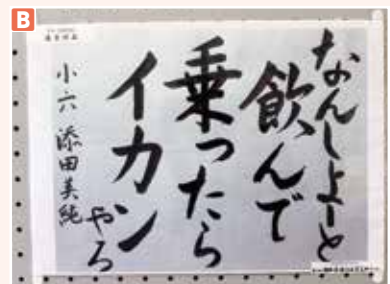 B
なんしよーと
飲んで
乗ったら
イカン
やろ
小六 添田美純